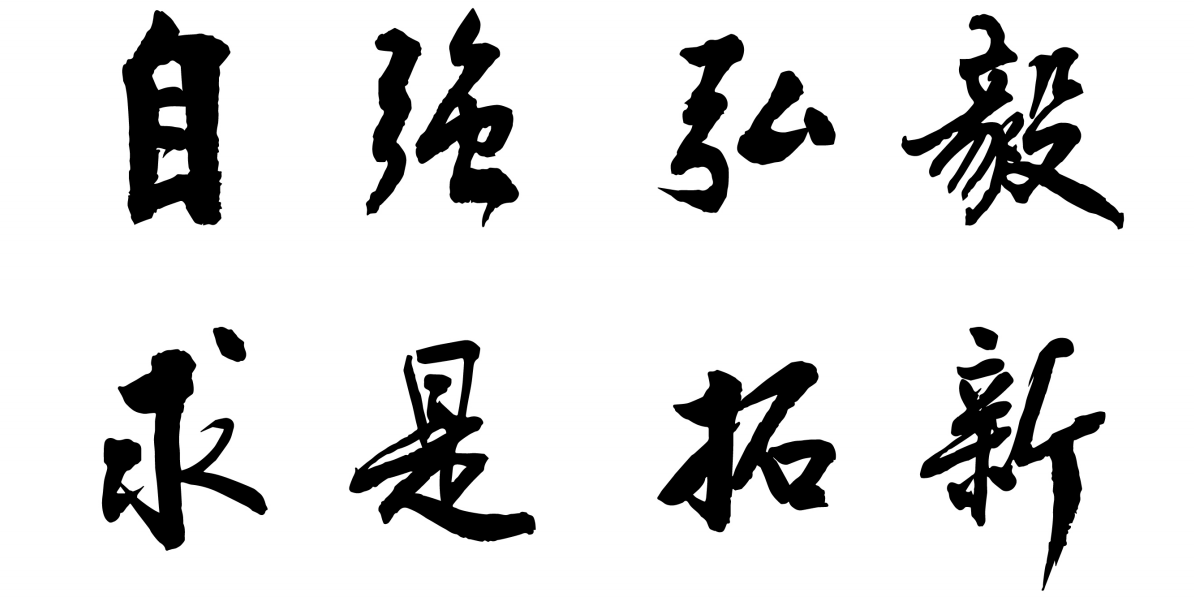 自强 弘毅
求是 拓新